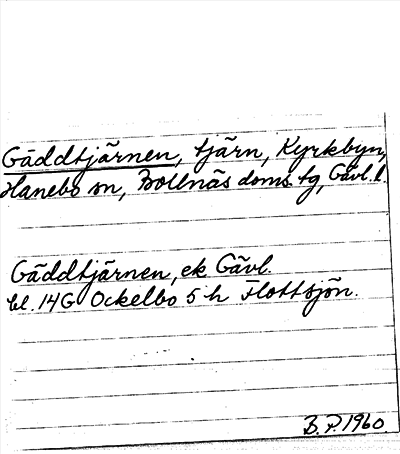 Gäddtjärnen, tjärn, Kyrkbyn,
Hanebo sn, Bollnäs doms. tg, Gävl. l.
Gäddtjärnen, ek Gävl.
bl. 14G Ockelbo 5 h Flottsjön.
B. P. 1960.